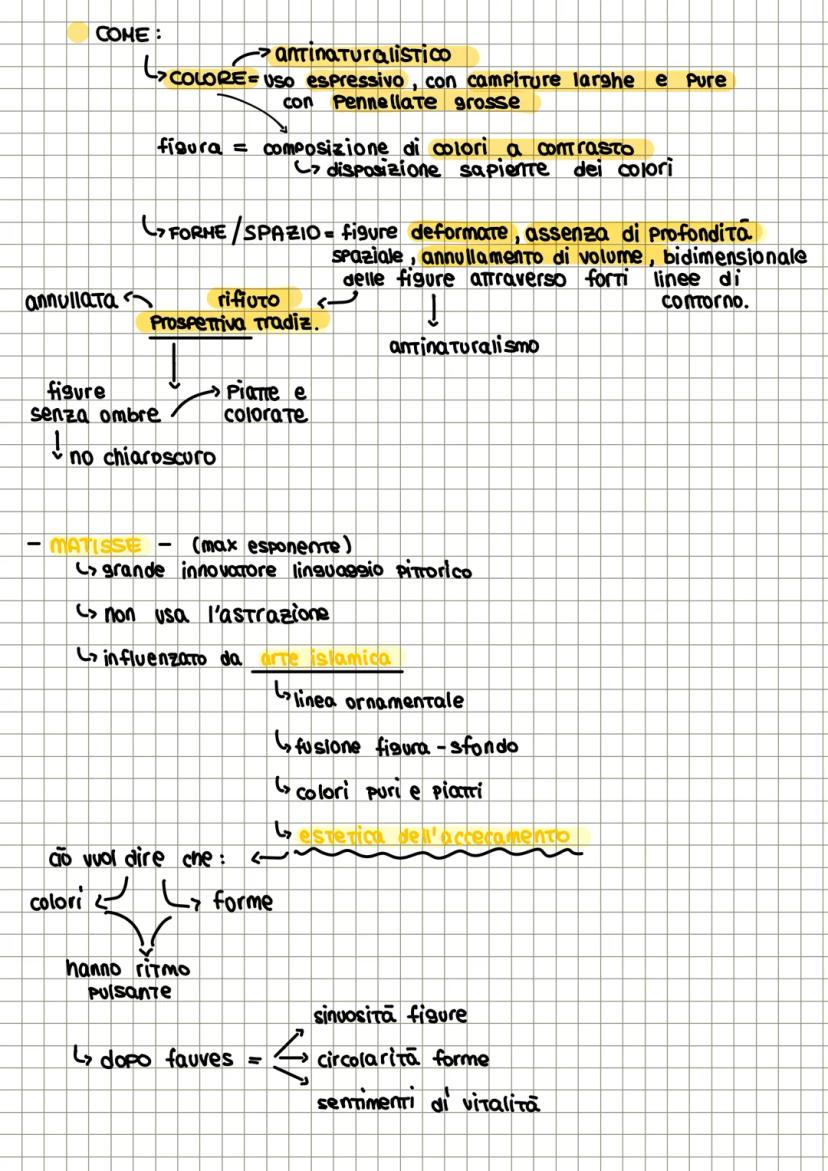 COME:
antinaturalistico
COLORE= uso espressivo, con campiture larghe e pure
con pennellate grosse
figura = composizione di colori a contrasto
disposizione sapiente dei colori
FORME/SPAZIO= figure deformate, assenza di profondità
spaziale, annullamento di volume, bidimensionale
delle figure attraverso forti linee di
contorno.
annullata
rifiuto
prospettiva tradiz.
antinaturalismo
figure
senza ombre
piatte e
colorate
no chiaroscuro
- MATISSE - (max esponente)
grande innovatore linguaggio pittorico
non usa l'astrazione
influenzato da arte islamica
linea ornamentale
fusione figura-sfondo
colori puri e piatti
estetica dell'accecamento
ciò vuol dire che:
colori
forme
hanno ritmo
pulsante
dopo fauves =
sinuosità figure
circolarità forme
sentimenti di vitalità